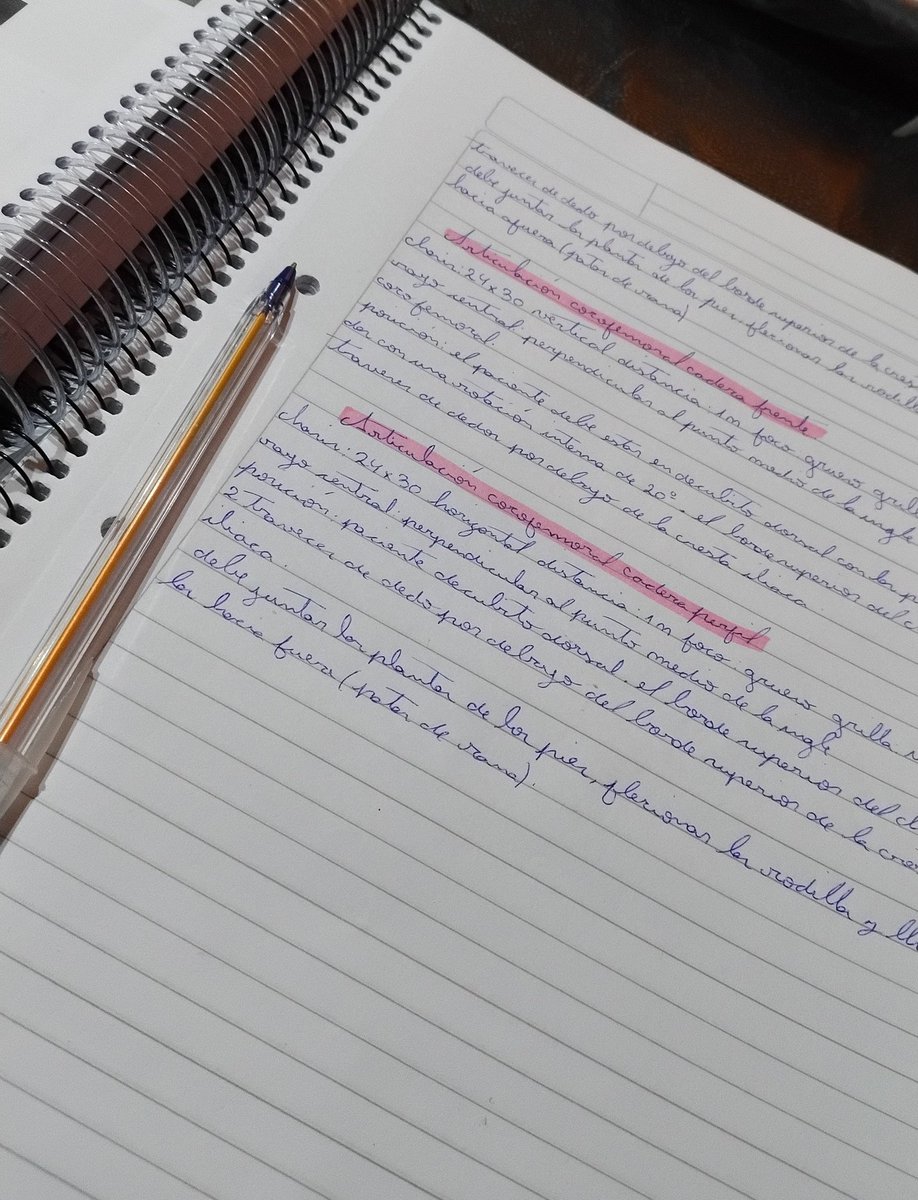 traveses de dedo por debajo del borde superior de la cres
debe juntar las plantas de los pies. flexionar las rodill
hacia afuera (patas de rana)
Articulación coxofemoral cadera frente
chasis: 24x30 vertical distancia: 1m foco grueso grill
rayo central: perpendicular al punto medio de la ingle
coxofemoral.
posición: el paciente debe estar en decubito dorsal con los p
der con una rotación interna de 20°. el borde superior del c
traveses de dedos por debajo de la cresta iliaca.
Articulación coxofemoral cadera perfil
chasis: 24x30 horizontal distancia: 1m foco grueso grilla
rayo central: perpendicular al punto medio de la ingle
posición: paciente decubito dorsal. el borde superior del c
2 traveses de dedo por debajo del borde superior de la cres
iliaca.
debe juntar las plantas de los pies, flexionar las rodilla y ll
las hacia fuera (patas de rana).